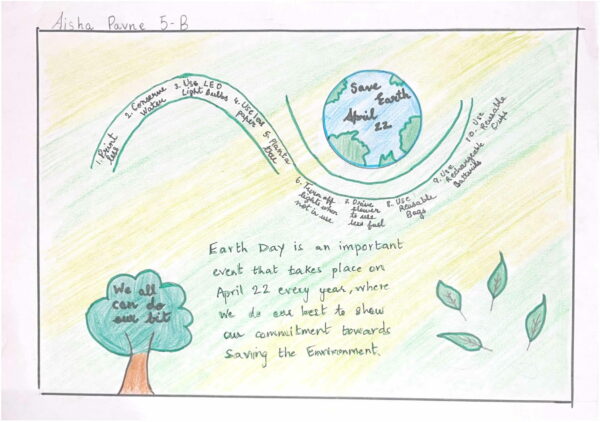 Aisha Pavne 5-B
1. Print
less
2. Conserve
Water
3. Use LED
Light Bulbs
4. Use less
paper
5. Plant a
tree
Save
Earth
April
22
6. Turn off
lights when
not in use
7. Drive
slower
to use
less fuel
8. Use
Reusable
Bags
9. Use
Rechargeable
Batteries
10. Use
Reusable
Cups
Earth Day is an important
event that takes place on
April 22 every year, where
we do our best to show
our commitment towards
Saving the Environment.
We all
can do
our bit